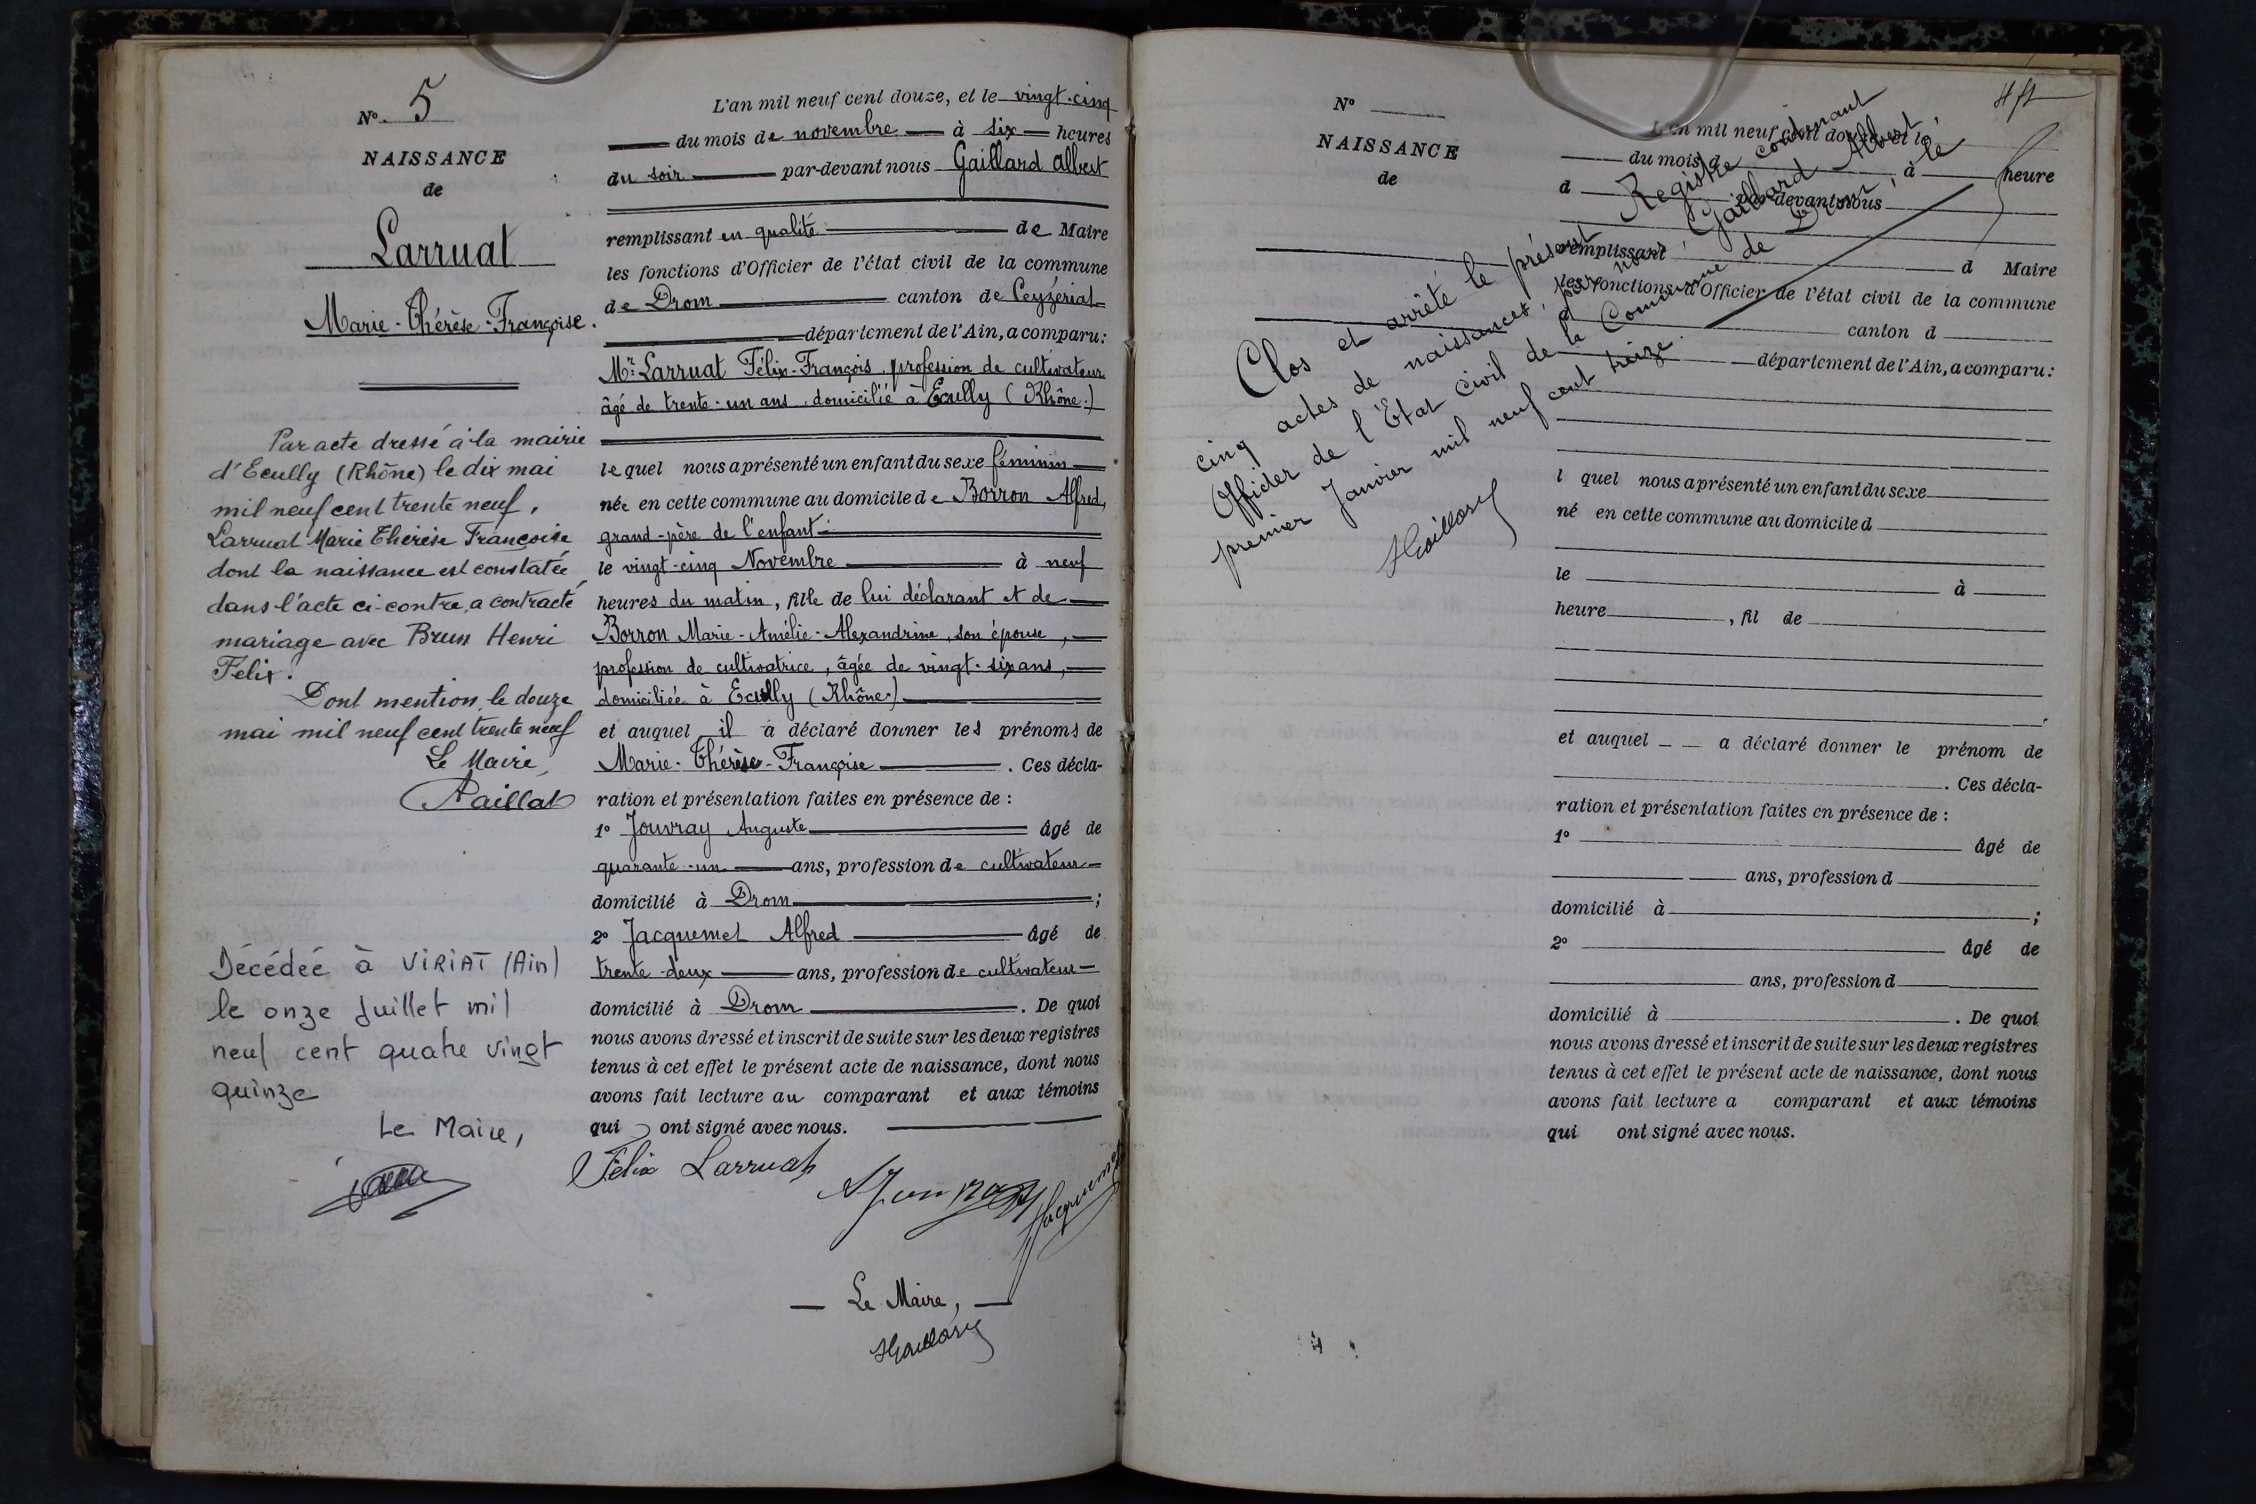 Nº 5
NAISSANCE
de
Larruat
Marie-Thérèse-Françoise.
Par acte dressé à la mairie
d'Ecully (Rhône) le dix mai
mil neuf cent trente neuf,
Larruat Marie Thérèse Françoise
dont la naissance est constatée
dans l'acte ci-contre, a contracté
mariage avec Brun Henri
Felix.
Dont mention, le douze
mai mil neuf cent trente neuf
Le Maire,
Paillat
Décédée à VIRIAT (Ain)
le onze Juillet mil
neuf cent quatre vingt
quinze
Le Maire,
L'an mil neuf cent douze, et le vingt-cinq
du mois de novembre à six heures
du soir par-devant nous Gaillard Albert
remplissant en qualité de Maire
les fonctions d'Officier de l'état civil de la commune
de Drom canton de Ceyzériat
département de l'Ain, a comparu:
Mr. Larruat Félix-François, profession de cultivateur
âgé de trente-un ans, domicilié à Ecully (Rhône.)
lequel nous a présenté un enfant du sexe féminin
née en cette commune au domicile de Borron Alfred,
grand-père de l'enfant
le vingt-cinq Novembre à neuf
heures du matin, fille de lui déclarant et de
Borron Marie-Amélie-Alexandrine, son épouse,
profession de cultivatrice, âgée de vingt-six ans,
domiciliée à Ecully (Rhône.)
et auquel il a déclaré donner les prénoms de
Marie-Thérèse-Françoise. Ces décla-
ration et présentation faites en présence de :
1º Jouvray Auguste âgé de
quarante-un ans, profession de cultivateur
domicilié à Drom ;
2º Jacquemet Alfred âgé de
trente-deux ans, profession de cultivateur
domicilié à Drom. De quoi
nous avons dressé et inscrit de suite sur les deux registres
tenus à cet effet le présent acte de naissance, dont nous
avons fait lecture au comparant et aux témoins
qui ont signé avec nous.
Félix Larruat
A Jouvray
Jacquemet
Le Maire,
AGaillard
Nº
NAISSANCE
de
Clos et arrêté le présent Registre contenant
cinq actes de naissances, par nous, Gaillard Albert,
Officier de l'Etat civil de la Commune de Drom, le
premier Janvier mil neuf cent treize.
AGaillard
L'an mil neuf cent douze, et le
du mois d à heure
d par-devant nous
remplissant d Maire
les fonctions d'Officier de l'état civil de la commune
d canton d
département de l'Ain, a comparu:
l quel nous a présenté un enfant du sexe
né en cette commune au domicile d
le à
heure , fil de
et auquel a déclaré donner le prénom de
. Ces décla-
ration et présentation faites en présence de :
1º âgé de
ans, profession d
domicilié à ;
2º âgé de
ans, profession d
domicilié à . De quoi
nous avons dressé et inscrit de suite sur les deux registres
tenus à cet effet le présent acte de naissance, dont nous
avons fait lecture a comparant et aux témoins
qui ont signé avec nous.